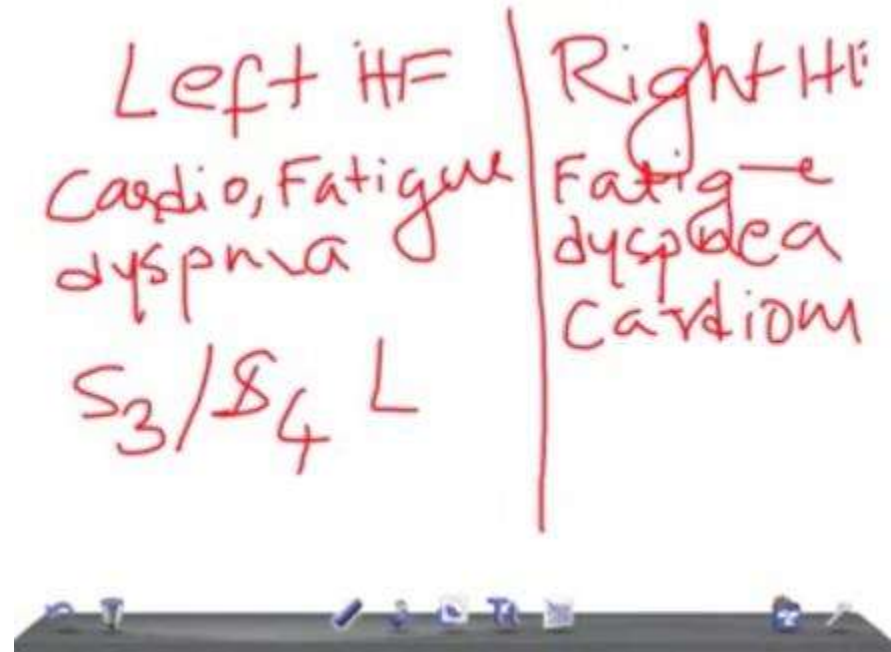 Left HF
Cardio, Fatigue
dyspnia
S3/S4 L
Right HF
Fatigue
dyspnea
Cardiom